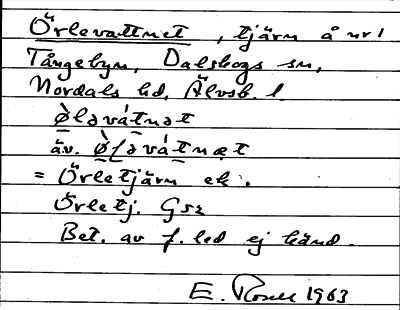 Örlevattnet, tjärn å nr 1
Tångebyn, Dalskogs sn,
Nordals hd, Älvsb. l.
Ø̀ləvátnət
äv. Ø̀ɽəvátnæt
= Örletjärn ek.
Örletj. Gsz
Bet. av f. led ej känd.
E. Rosell 1963